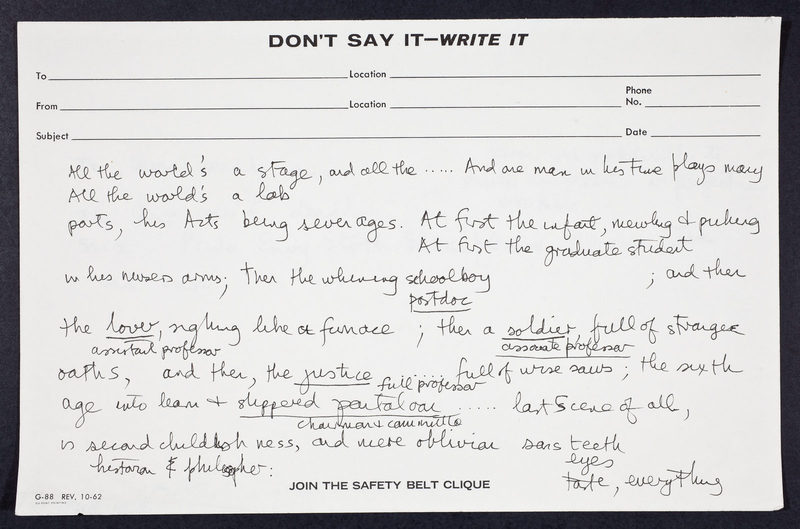 DON'T SAY IT—WRITE IT
To Location
Phone
From Location No.
Subject Date
All the world's a stage, and all the ..... And one man in his time plays many
All the world's a lab
parts, his Acts being seven ages. At first the infant, mewling & puking
At first the graduate student
in his nurses arms; Then the whining schoolboy ; and then
postdoc
the lover, sighing like a furnace ; then a soldier, full of strange
assistant professor associate professor
oaths, and then, the justice ..... full of wise saws; the sixth
full professor
age into lean & slippered pantaloon ..... last Scene of all,
chairman & committee
is second childishness, and mere oblivion sans teeth
eyes
historian & philosopher: taste, everything
JOIN THE SAFETY BELT CLIQUE
G-88 REV. 10-62